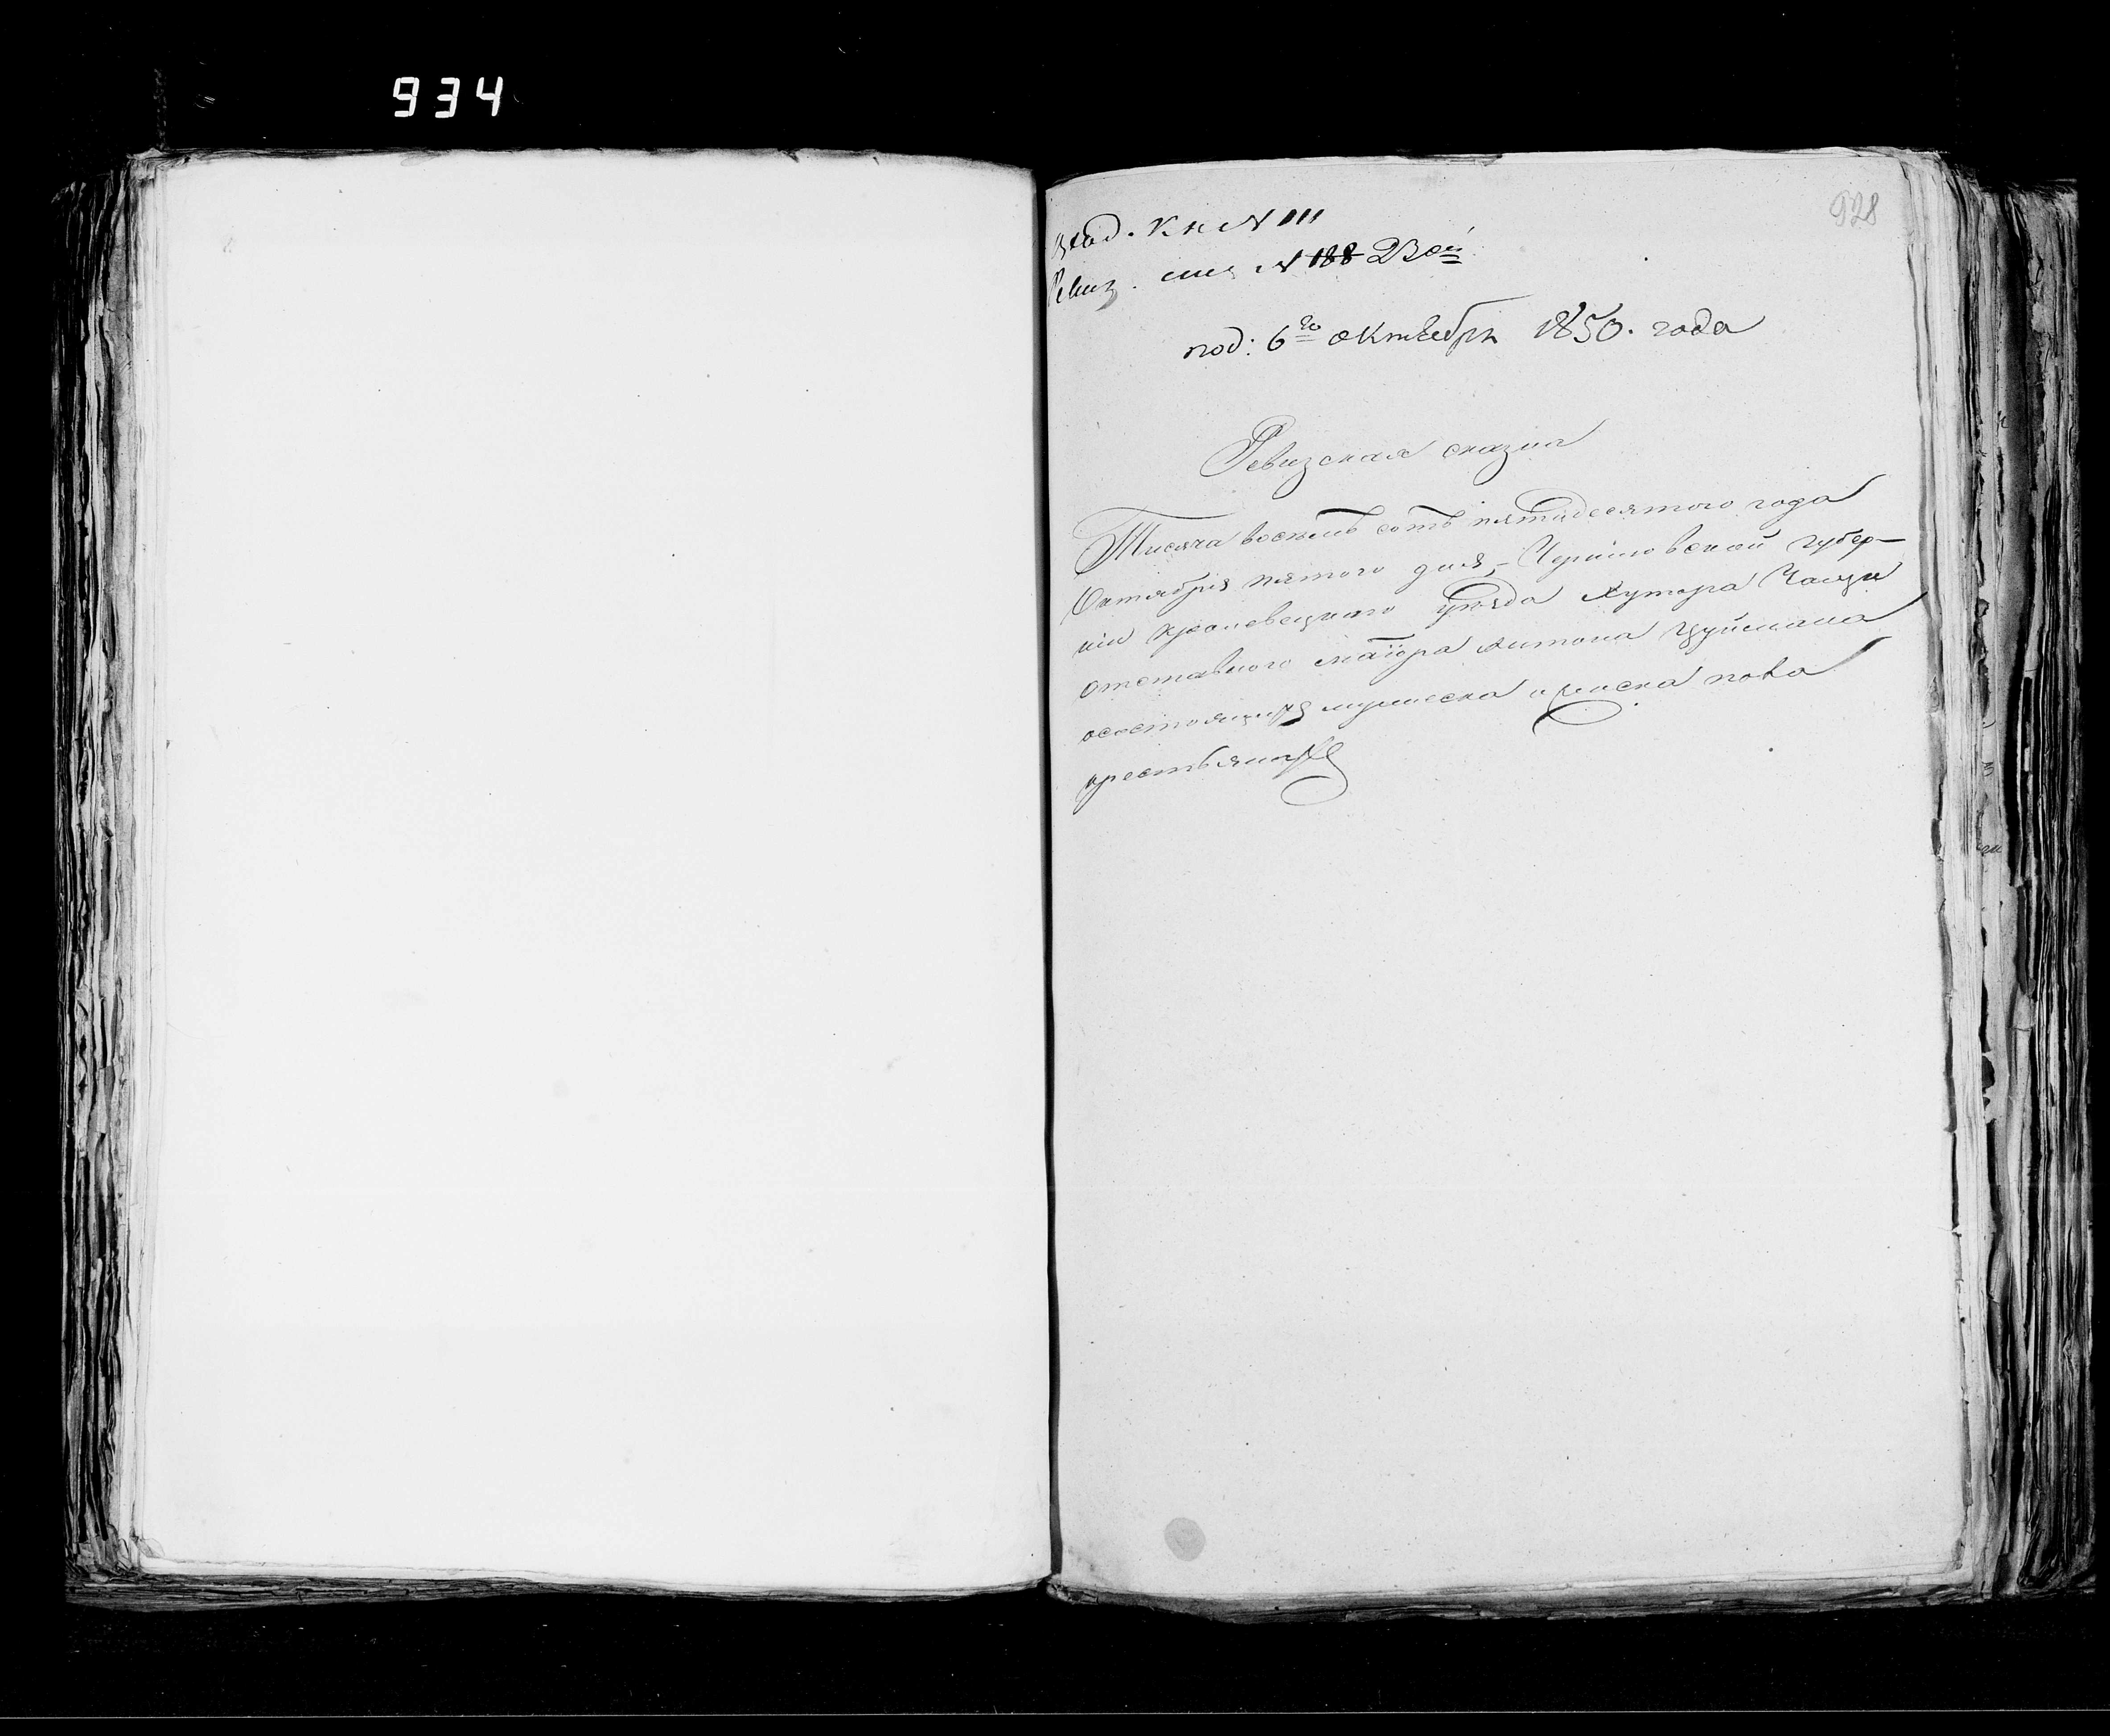 934
928
Вход. Кн N 111
Ревиз. N 188 23ой
под: 6го октября 1850. года
Ревизская сказка
Тисяча восемь сотъ пятидесятого года
Октября пятого дня, Черниговской губер-
ніи Кролевецкого уѣзда Хутора
отставного маіора Антона Цуймана
осостоящихъ мужеска и женска пола
крестьянахъ